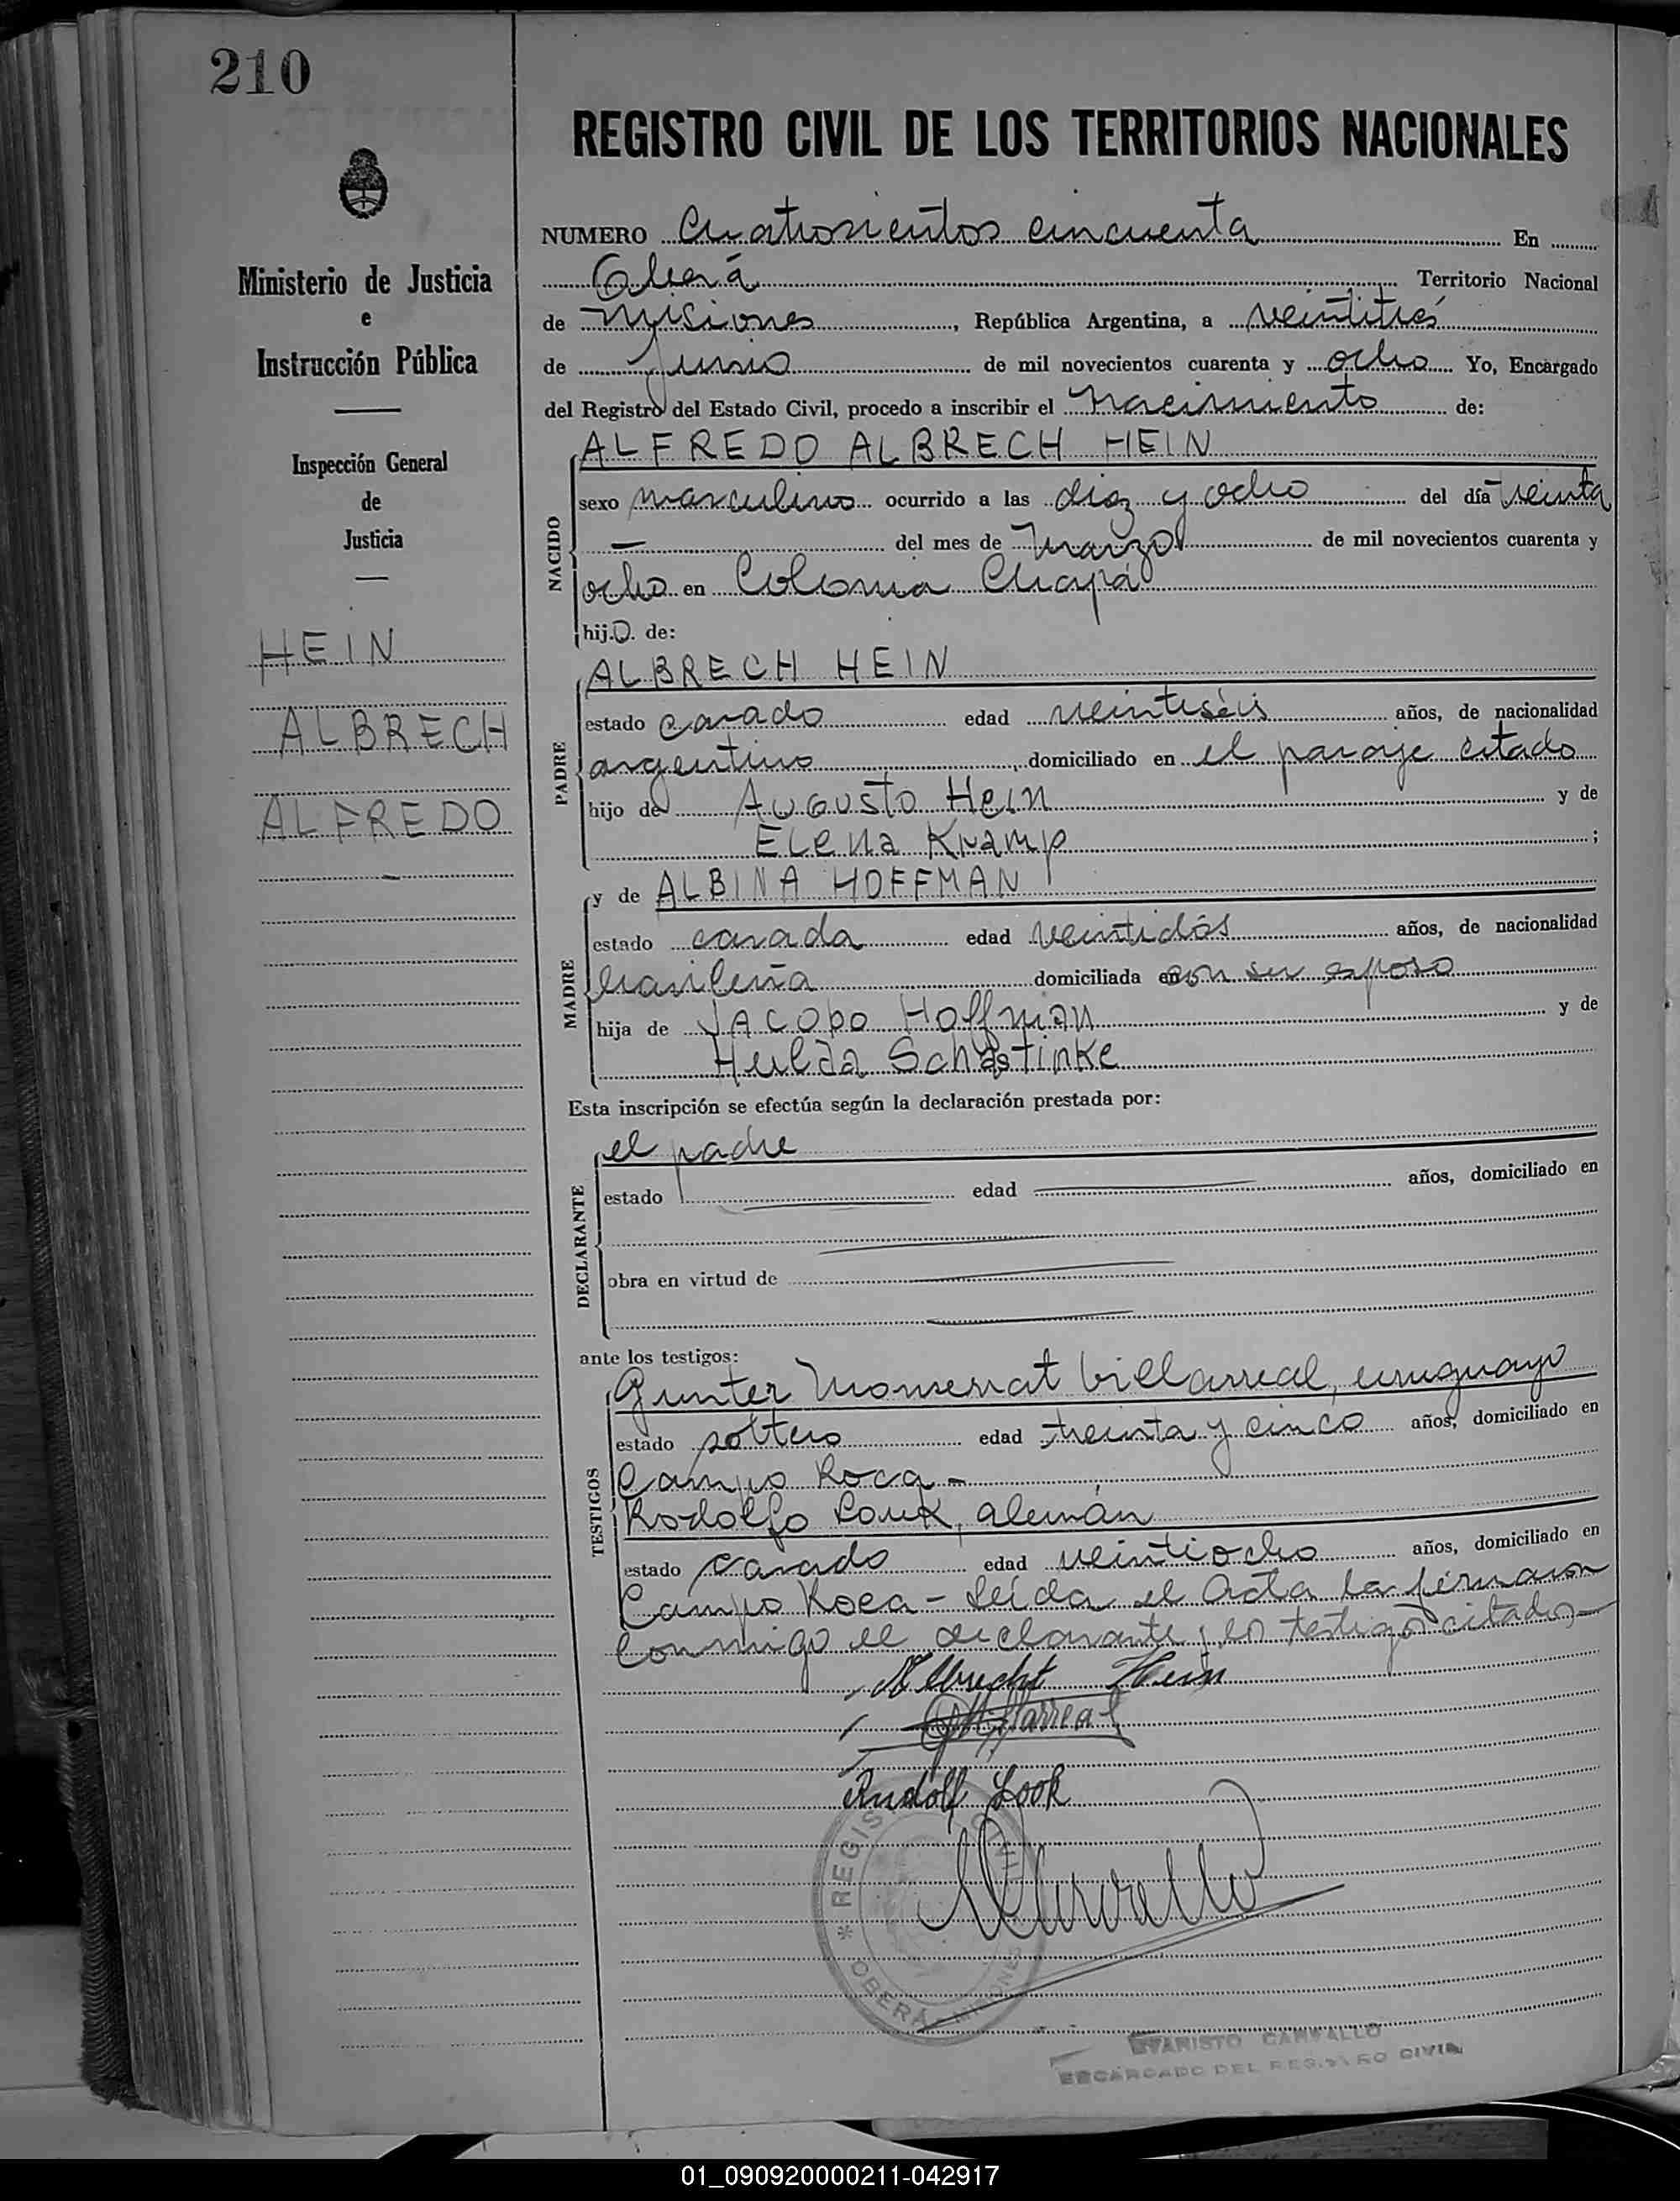 210
REGISTRO CIVIL DE LOS TERRITORIOS NACIONALES
NUMERO Cuatrosientos cincuenta En
Oberá Territorio Nacional
de Misiones, República Argentina, a veintitrés
de Junio de mil novecientos cuarenta y ocho Yo, Encargado
del Registro del Estado Civil, procedo a inscribir el nacimiento de:
ALFREDO ALBRECH HEIN
NACIDO
sexo masculino ocurrido a las diez y ocho del día treinta
— del mes de Marzo de mil novecientos cuarenta y
ocho en Colonia Chapá
hijo. de:
PADRE
ALBRECH HEIN
estado casado edad veintiséis años, de nacionalidad
argentino, domiciliado en el paraje citado
hijo de Augusto Hein y de
Elena Kramp;
MADRE
y de ALBINA HOFFMAN
estado casada edad veintidós años, de nacionalidad
brasileña domiciliada en con su esposo
hija de Jacobo Hoffman y de
Hulda Schastinke
Esta inscripción se efectúa según la declaración prestada por:
DECLARANTE
el padre
estado edad años, domiciliado en
obra en virtud de
ante los testigos:
TESTIGOS
Gunter Monserrat Villarreal, uruguayo
estado soltero edad treinta y cinco años, domiciliado en
Campo Roca -
Rodolfo Louk, alemán
estado casado edad veintiocho años, domiciliado en
Campo Roca - Leída el Acta la firmaron
conmigo el declarante y los testigos citados -
Albrecht Hein
Villarreal
Rudolf Look
REGIS CIVIL
OBERÁ - MISIONES
EVARISTO CARVALLO
ENCARGADO DEL REGISTRO CIVIL
Ministerio de Justicia
e
Instrucción Pública
Inspección General
de
Justicia
HEIN
ALBRECH
ALFREDO
01_090920000211-042917